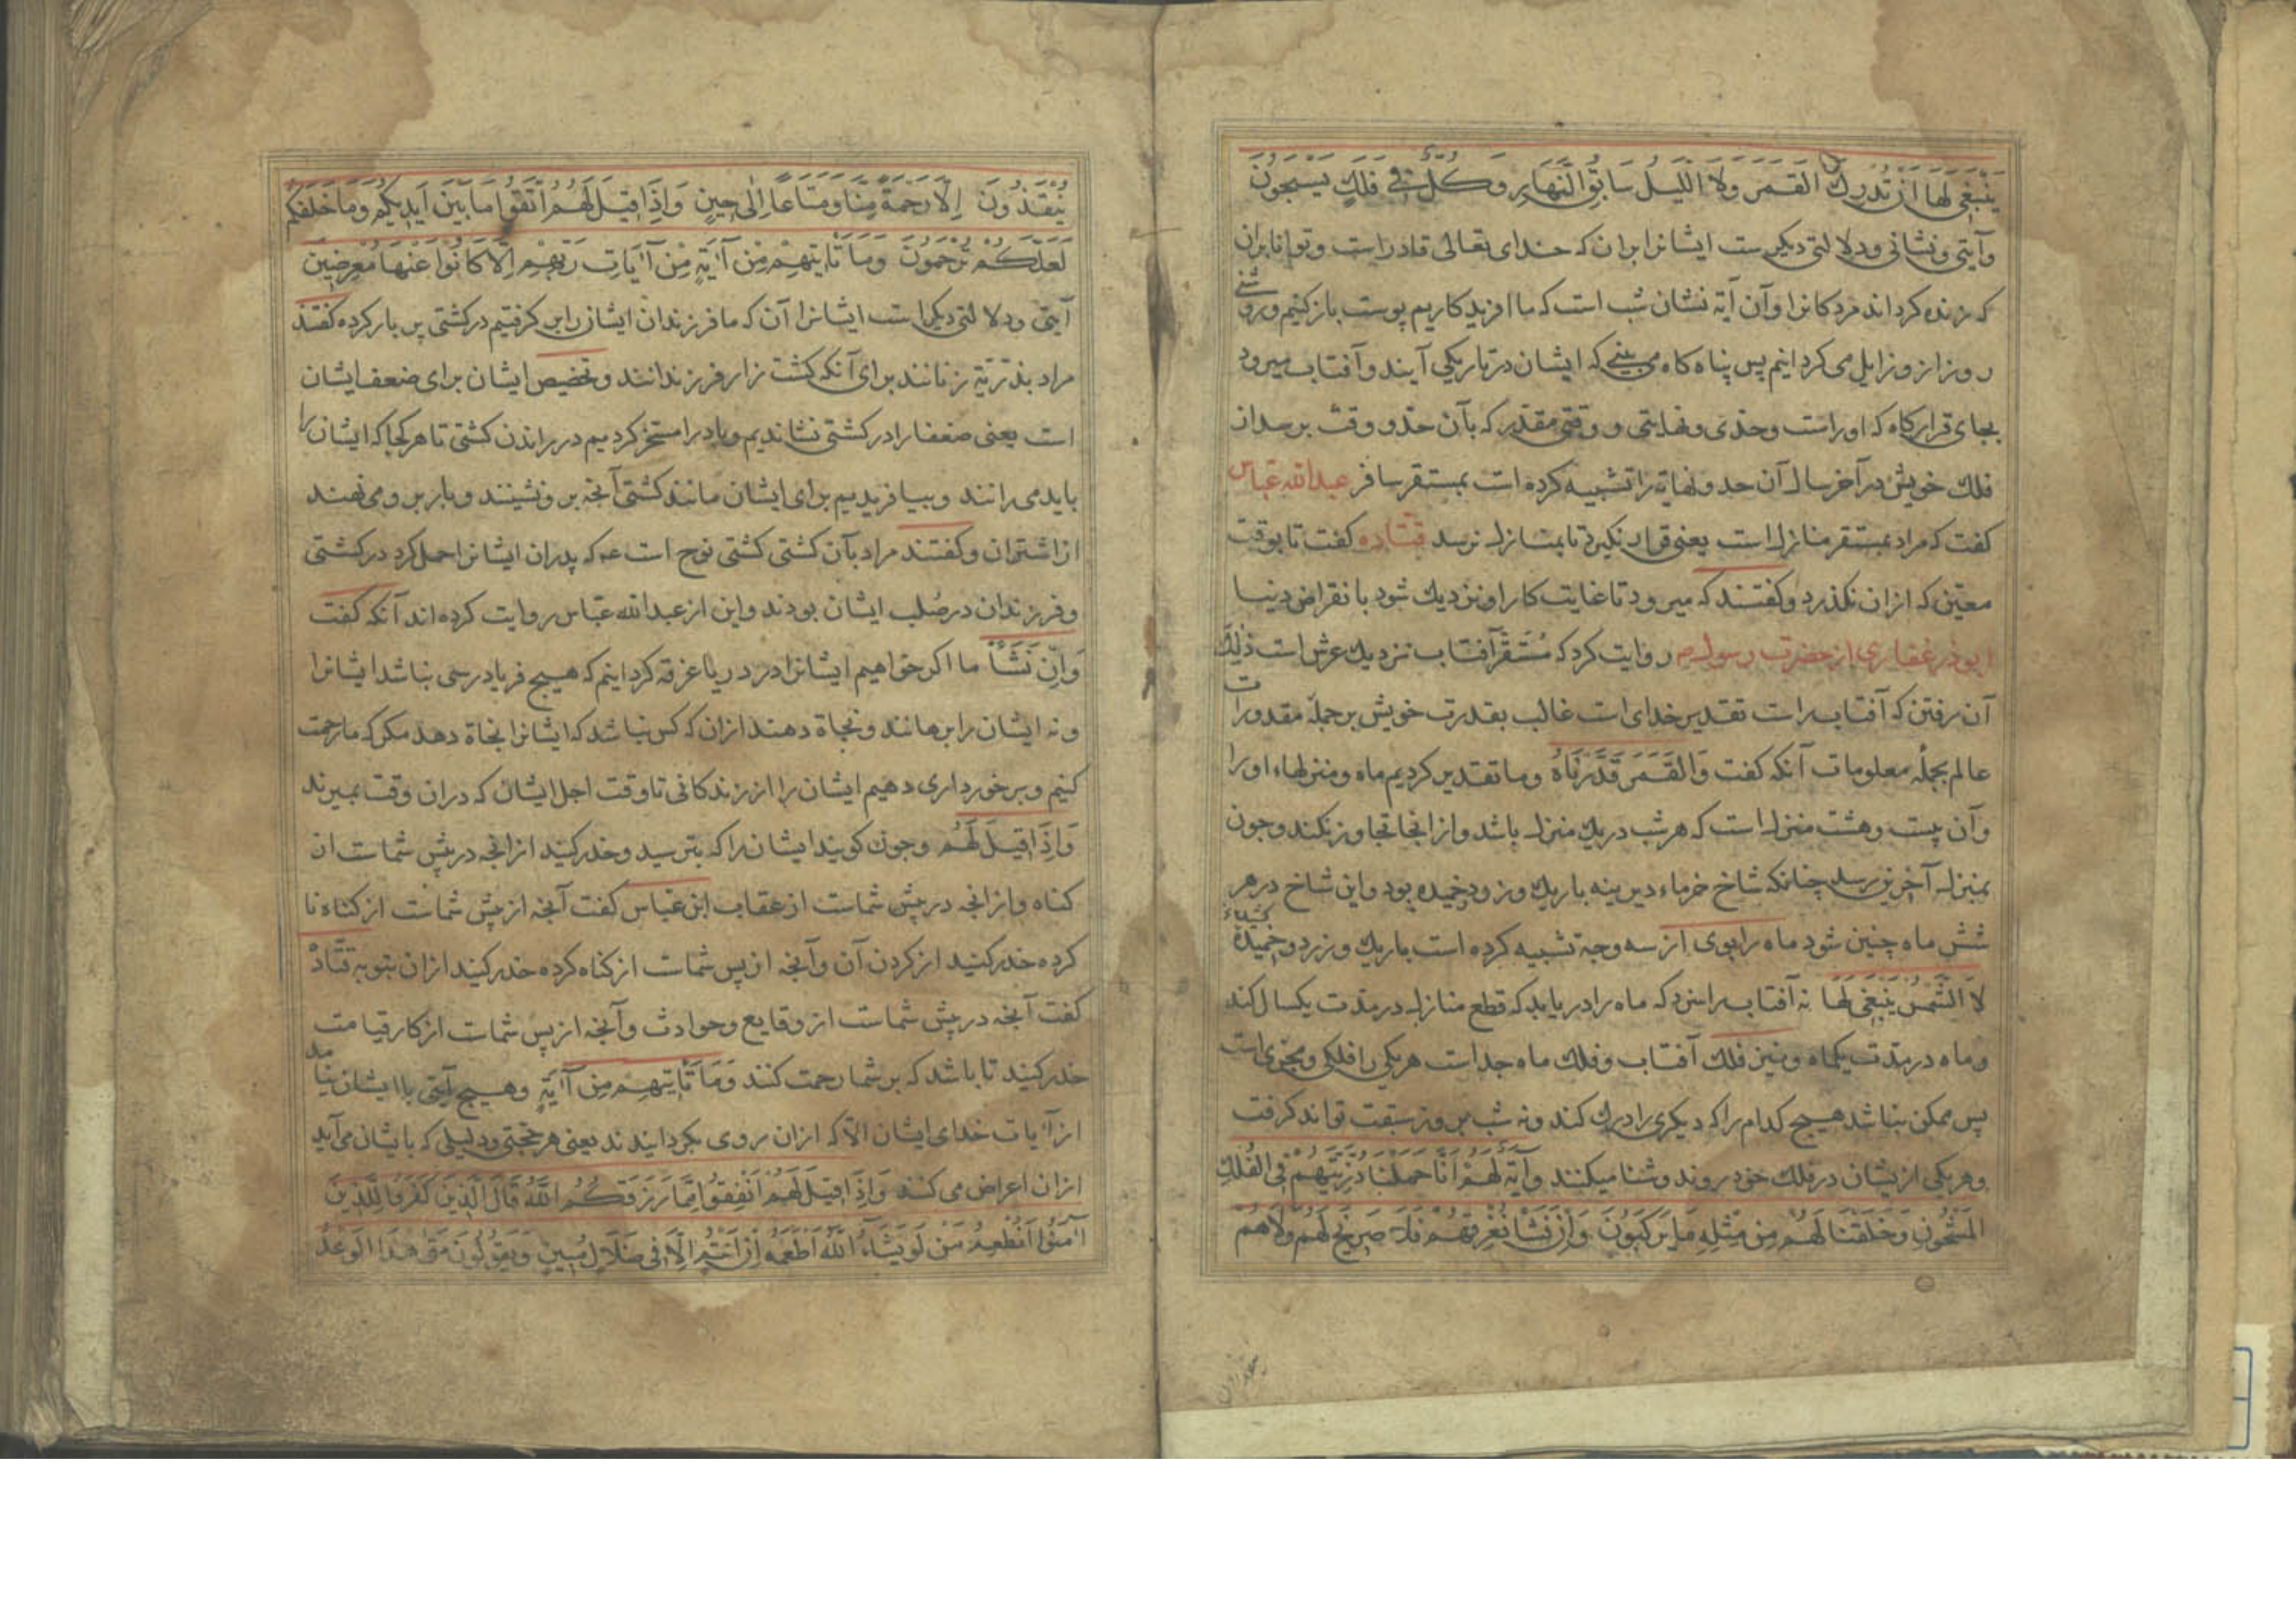 يَنْبَغِي لَهَا اَنْ تُدْرِكَ القَمَرَ وَلَا اللَّيْلُ سَابِقُ النَّهَارِ وَكُلٌّ فِي فَلَكٍ يَسْبَحُونَ
وآيتی ونشانی ودلالتی دیکرست ایشانرا بران که خدای تعالی قادراست وتوانا بران
که زنده کرداند مردکانرا وآن آیة نشان شب است که ما افریدکاریم پوست بازکنیم وروشنی
روز ازو زایل می کردانیم پس پناه کاه می بینی که ایشان در تاریکی آیند وآفتاب میرود
بجای قرارکاه که اوراست وحدی ونهایتی ووقتی مقدر که بآن حد ووقت برسد از
فلك خویش در آخر سال آن حد ونهایة را تشبیه کرده است بمستقر مسافر عبدالله عباس
کفت که مراد بمستقر منازل است یعنی قرار نکیرد تا بمنازل نرسد قتاده کفت تا بوقت
معین که ازان نکذرد وکفتند که میرود تا غایت کار او نزدیك شود بانقراض دنیا
ابوذر غفاری از حضرت رسول م روایت کرد که مُسْتَقَر آفتاب نزدیك عرش است ذٰلِكَ
آن رفتن که آفتاب راست تقدیر خدای است غالب بقدرت خویش بر جملهٔ مقدورات
عالم بجملهٔ معلومات آنکه کفت وَالقَمَرَ قَدَّرْنَاهُ وما تقدیر کردیم ماه ومنزلهاء اورا
وآن بیست وهشت منزل است که هر شب در یك منزل باشد وازانجا تجاوز نکند وچون
بمنزل آخرین رسد چنانکه شاخ خرماء دیرینه باریك وزرد وخمیده بود واین شاخ در هر
شش ماه چنین شود ماه را بوی از سه وجه تشبیه کرده است باریك وزرد وخمیدهٔ
لَا الشَّمْسُ يَنْبَغِي لَهَا نه آفتاب را سزد که ماه را دریابد که قطع منازل در مدت یکسال کند
وماه در مدت یکماه ونیز فلك آفتاب وفلك ماه جداست هر یکی را فلکی ومجری است
پس ممکن نباشد هیچ کدام را که دیکری را درك کند ونه شب بر روز سبقت تواند کرفت
وهر یکی ازیشان در فلك خود روند وشنا میکنند وَآيَةٌ لَهُمْ اَنَّا حَمَلْنَا ذُرِّيَّتَهُمْ فِي الفُلْكِ
المَشْحُونِ وَخَلَقْنَا لَهُمْ مِنْ مِثْلِهِ مَا يَرْكَبُونَ وَاِنْ نَشَأْ نُغْرِقْهُمْ فَلَا صَرِيخَ لَهُمْ وَلَا هُمْ
يُنْقَذُونَ اِلَّا رَحْمَةً مِنَّا وَمَتَاعًا اِلٰى حِينٍ وَاِذَا قِيلَ لَهُمُ اتَّقُوا مَا بَيْنَ اَيْدِيكُمْ وَمَا خَلْفَكُمْ
لَعَلَّكُمْ تُرْحَمُونَ وَمَا تَأْتِيهِمْ مِنْ آيَةٍ مِنْ آيَاتِ رَبِّهِمْ اِلَّا كَانُوا عَنْهَا مُعْرِضِينَ
آیتی ودلالتی دیکراست ایشانرا آن که ما فرزندان ایشان را بر کرفتیم در کشتی پر بار کرده کفتند
مراد بذُرّیّة زنانند برای آنکه کشت زار فرزندانند وتخصیص ایشان برای ضعف ایشان
است یعنی ضعفا را در کشتی نشاندیم وباد را مسخر کردیم در راندن کشتی تا هر کجا که ایشان را
باید می رانند وبیافریدیم برای ایشان مانند کشتی آنچه بر ونشینند وبار بر ومی نهند
از اشتران وکفتند مراد بآن کشتی کشتی نوح است عم که پدران ایشانرا حمل کرد در کشتی
وفرزندان در صُلب ایشان بودند واین از عبدالله عباس روایت کرده اند آنکه کفت
وَاِنْ نَشَأْ ما اکر خواهیم ایشانرا در دریا غرقه کردانیم که هیچ فریاد رسی نباشد ایشانرا
ونه ایشان را برهانند ونجاة دهند ازان که کس نباشد که ایشانرا نجاة دهد مکر که ما رحمت
کنیم وبرخورداری دهیم ایشان را از زندکانی تا وقت اجل ایشان که دران وقت بمیرند
وَاِذَا قِيلَ لَهُمُ وچون کویند ایشان را که بترسید وحذر کنید ازانچه در پیش شماست از
کناه وازانچه در پیش شماست از عقاب ابن عباس کفت آنچه از پیش شماست از کناه نا
کرده حذر کنید از کردن آن وآنچه از پس شماست از کناه کرده حذر کنید ازان بتوبه قَتَادَه
کفت آنچه در پیش شماست از وقایع وحوادث وآنچه از پس شماست از کار قیامت
حذر کنید تا باشد که بر شما رحمت کنند وَمَا تَأْتِيهِمْ مِنْ آيَةٍ وهیچ آیتی باایشان نیامد
از آیات خدای ایشان الا که ازان روی بکردانیدند یعنی هر حجتی ودلیلی که بایشان می آید
ازان اعراض می کنند وَاِذَا قِيلَ لَهُمْ اَنْفِقُوا مِمَّا رَزَقَكُمُ اللّٰهُ قَالَ الَّذِينَ كَفَرُوا لِلَّذِينَ
آمَنُوا اَنُطْعِمُ مَنْ لَوْ يَشَاءُ اللّٰهُ اَطْعَمَهُ اِنْ اَنْتُمْ اِلَّا فِي ضَلَالٍ مُبِينٍ وَيَقُولُونَ مَتٰى هٰذَا الْوَعْدُ